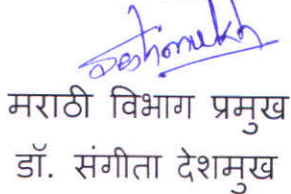 Deshmukh
मराठी विभाग प्रमुख
डॉ. संगीता देशमुख